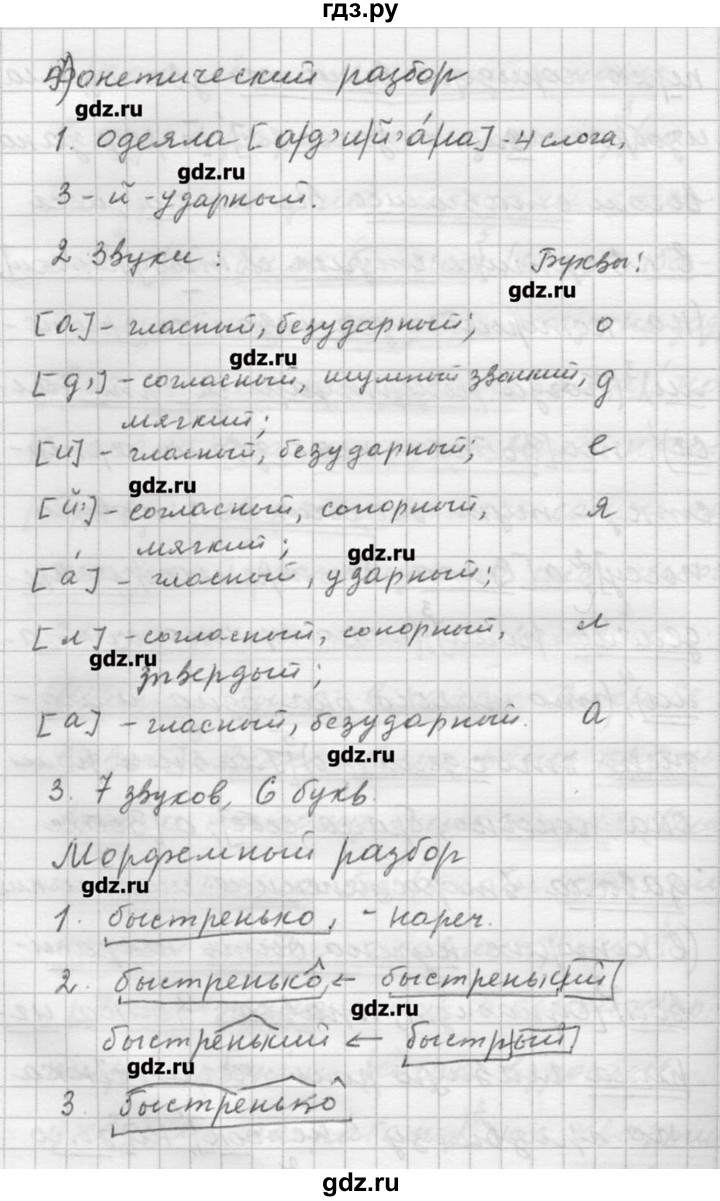 гдз.ру
Фонетический разбор
gdz.ru
1. одеяла [а/д'и/й'а́/ла] - 4 слога,
gdz.ru
3-й - ударный.
2 Звуки: Буквы:
gdz.ru
[а] - гласный, безударный; о
gdz.ru
[д'] - согласный, шумный звонкий, д
мягкий;
[и] - гласный, безударный; е
gdz.ru
[й'] - согласный, сонорный, я
мягкий;
gdz.ru
[а́] - гласный, ударный;
[л] - согласный, сонорный, л
gdz.ru
твердый;
[а] - гласный, безударный. а
gdz.ru
3. 7 звуков, 6 букв.
Морфемный разбор
gdz.ru
1. быстренько, - нареч.
2. быстренько ← быстренький
gdz.ru
быстренький ← быстрый
gdz.ru
3. быстренько
gdz.ru